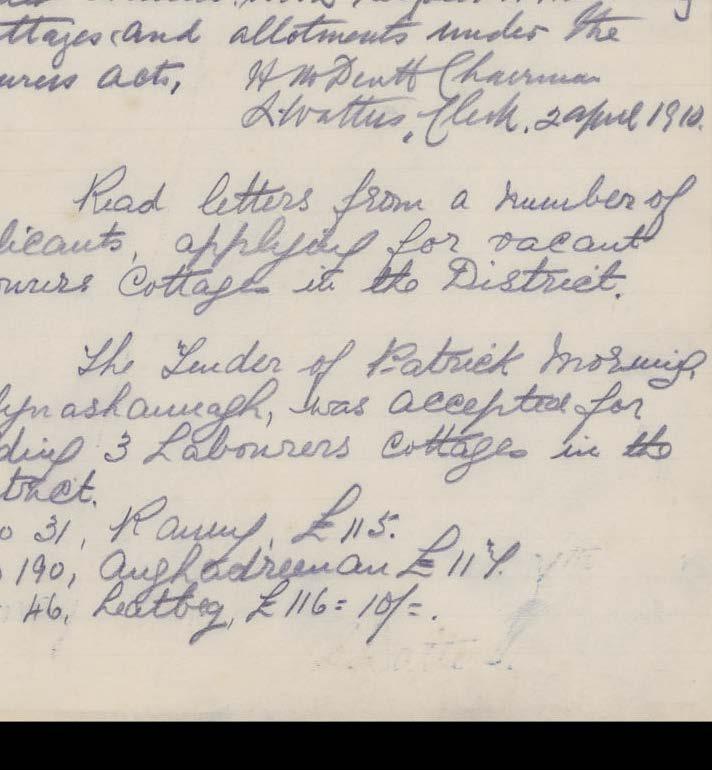 ttages and allotments under the
urers acts, H McDevitt Chairman
2 april 1910.
Read letters from a number of
licants, applying for vacant
ourers Cottages in the District.
The Tender of Patrick
lynashannagh, was accepted for
ding 3 Labourers cottages in the
trict.
o 31, Ranny, £115.
190, Aughadreenan £117.
46, Leatbeg, £116=10/=.